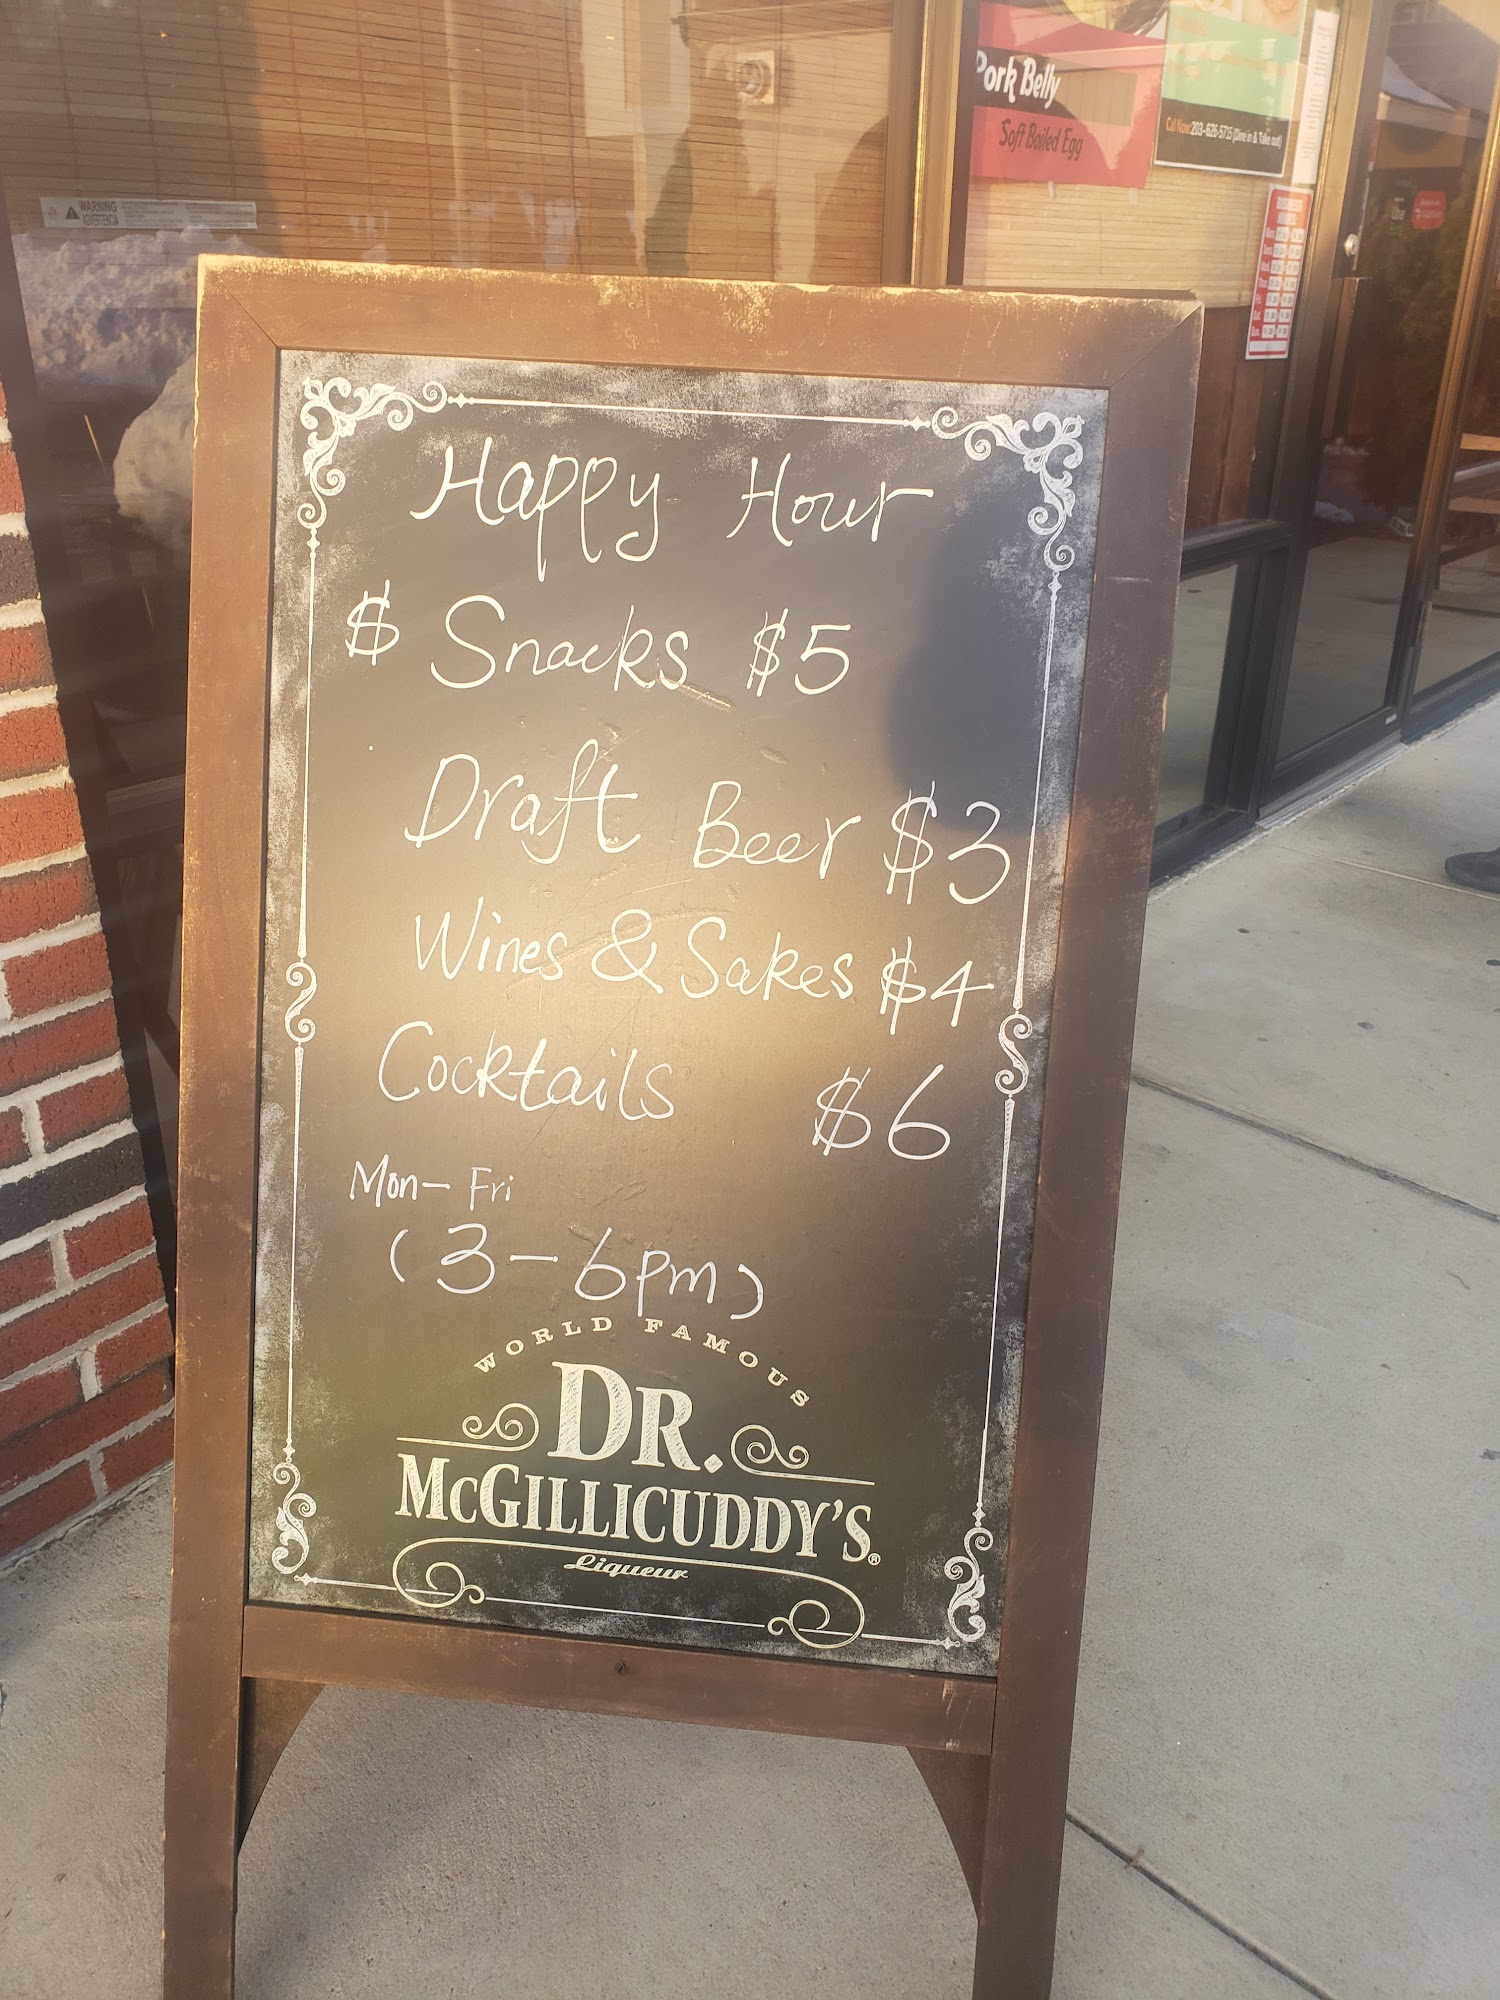 Pork Belly
Soft Boiled Egg
Call Now 203-626-5715 (Dine in & Take out)
WARNING
ADVERTENCIA
BUSINESS
HOURS
Happy Hour
$ Snacks $5
Draft Beer $3
Wines & Sakes $4
Cocktails $6
Mon- Fri
(3-6pm)
WORLD FAMOUS
DR.
McGILLICUDDY'S®
Liqueur